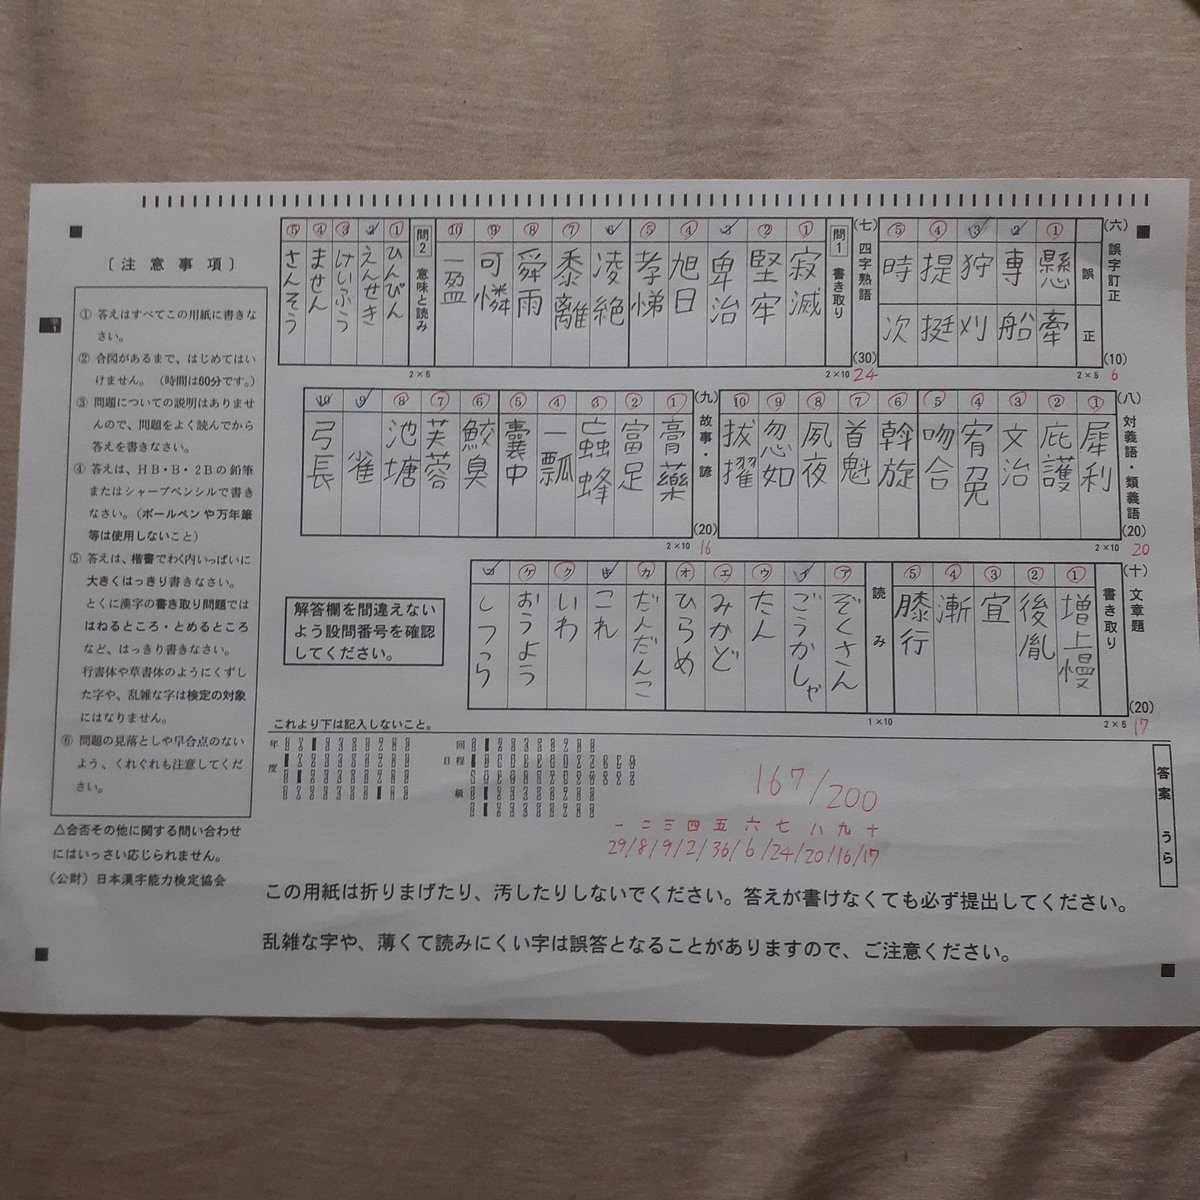 (六) 誤字訂正 (10)
6
誤 正
① 懸 牽
② 専 船
③ 狩 刈
④ 提 挺
⑤ 時 次
2×5
(七) 四字熟語 (30)
24
問1 書き取り
① 寂滅
② 堅牢
③ 卑治
④ 旭日
⑤ 孝悌
⑥ 凌絶
⑦ 黍離
⑧ 舜雨
⑨ 可憐
⑩ 一盈
2×10
問2 意味と読み
① ひんぴん
② えんせき
③ けいふう
④ ません
⑤ さんそう
2×5
(八) 対義語・類義語 (20)
20
① 犀利
② 庇護
③ 文治
④ 宥免
⑤ 吻合
⑥ 斡旋
⑦ 首魁
⑧ 夙夜
⑨ 忽如
⑩ 抜擢
2×10
(九) 故事・諺 (20)
16
① 膏薬
② 富足
③ 虻蜂
④ 一瓢
⑤ 嚢中
⑥ 鮫臭
⑦ 芙蓉
⑧ 池塘
⑨ 雀
⑩ 弓長
2×10
(十) 文章題 (20)
17
書き取り
① 増上慢
② 後胤
③ 宜
④ 漸
⑤ 膝行
2×5
読み
ア ぞくさん
イ ごうかしゃ
ウ たん
エ みかど
オ ひらめ
カ だんだんこ
キ これ
ク いわ
ケ おうよう
コ しつら
1×10
解答欄を間違えない
よう設問番号を確認
してください。
〔注意事項〕
① 答えはすべてこの用紙に書きな
さい。
② 合図があるまで、はじめてはい
けません。(時間は60分です。)
③ 問題についての説明はありませ
んので、問題をよく読んでから
答えを書きなさい。
④ 答えは、HB・B・2Bの鉛筆
またはシャープペンシルで書き
なさい。(ボールペンや万年筆
等は使用しないこと)
⑤ 答えは、楷書でわく内いっぱいに
大きくはっきり書きなさい。
とくに漢字の書き取り問題では
はねるところ・とめるところ
など、はっきり書きなさい。
行書体や草書体のようにくずし
た字や、乱雑な字は検定の対象
にはなりません。
⑥ 問題の見落としや早合点のない
よう、くれぐれも注意してくだ
さい。
△合否その他に関する問い合わせ
にはいっさい応じられません。
(公財)日本漢字能力検定協会
これより下は記入しないこと。
年度
回
日程
級
167/200
一 二 三 四 五 六 七 八 九 十
29/8/9/2/36/6/24/20/16/17
答案 うら
この用紙は折りまげたり、汚したりしないでください。答えが書けなくても必ず提出してください。
乱雑な字や、薄くて読みにくい字は誤答となることがありますので、ご注意ください。